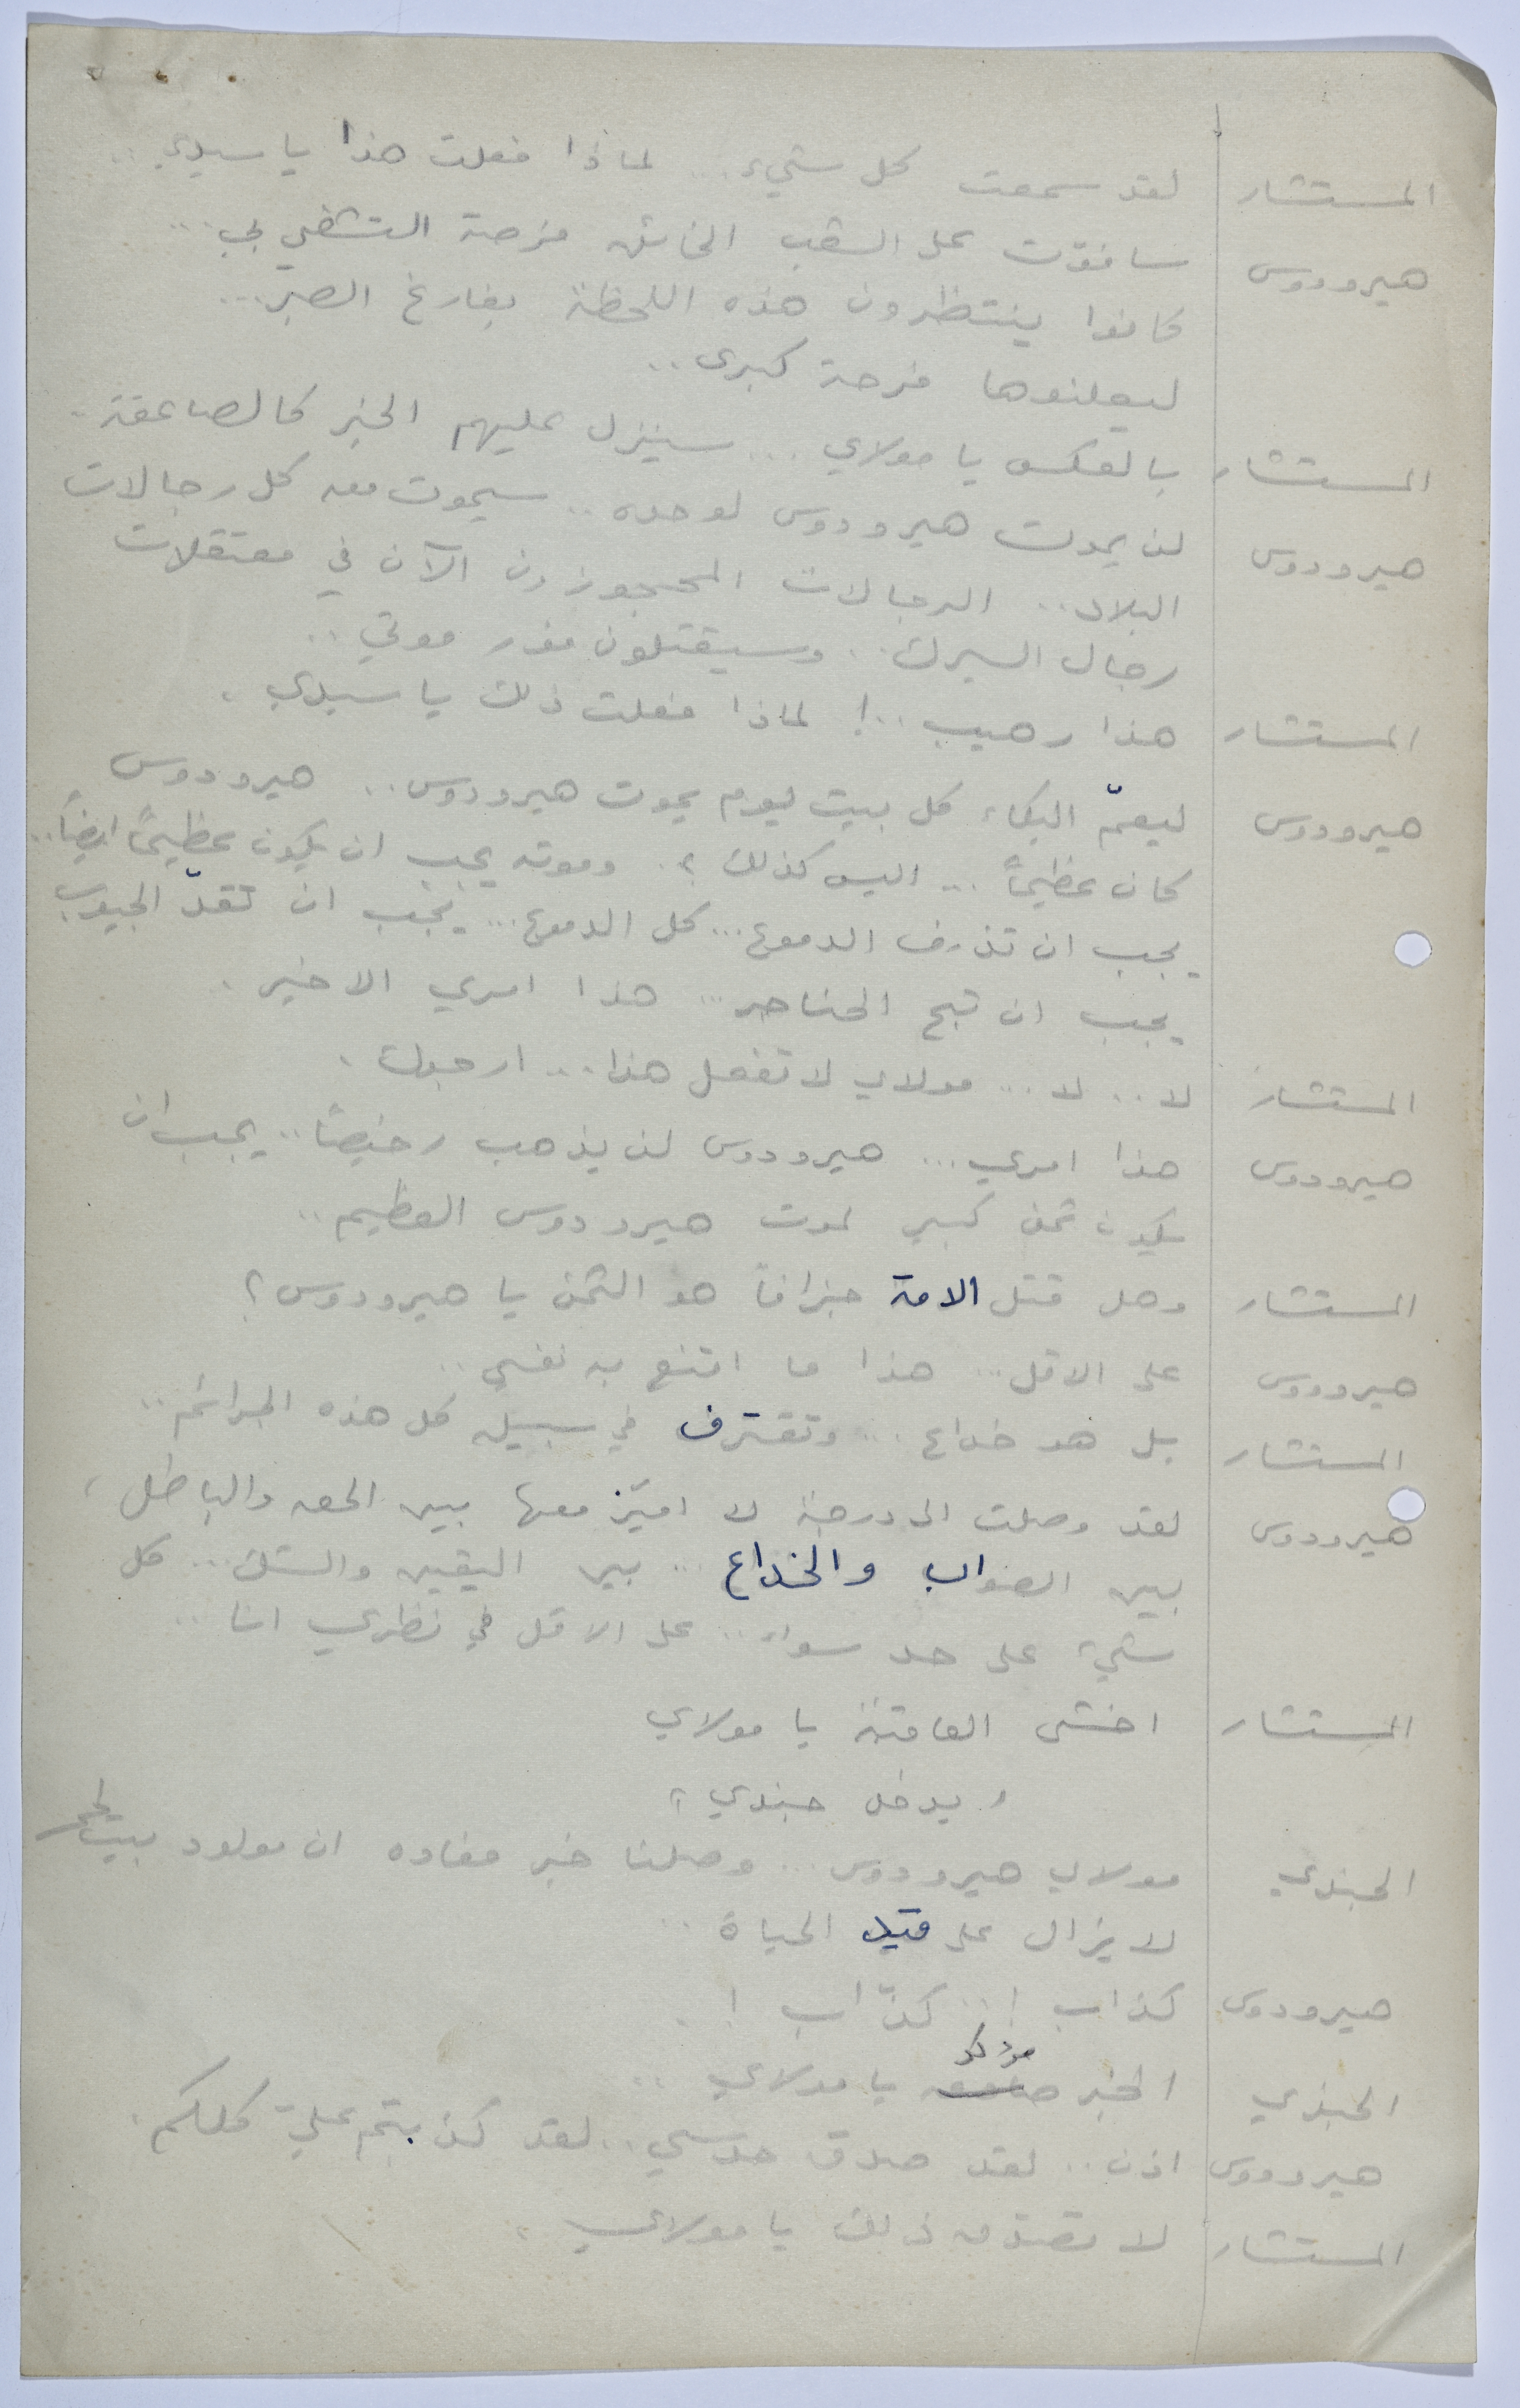 المستشار لقد سمعت كل شيء... لماذا فعلت هذا يا سيدي..
هيرودوس سأفوّت على الشعب الخائن فرصة التشفي بي...
كانوا ينتظرون هذه اللحظة بفارغ الصبر...
ليعلنوها فرحة كبرى..
المستشار بالعكس يا مولاي... سينزل عليهم الخبر كالصاعقة.
هيرودوس لن يموت هيرودوس لوحده.. سيموت معه كل رجالات
البلاد.. الرجالات المحجوزون الآن في معتقلات
رجال السيرك.. وسيقتلون فور موتي..
المستشار هذا رهيب..! لماذا فعلت ذلك يا سيدي.
هيرودوس ليعمّ البكاء كل بيت ليوم يموت هيرودوس.. هيرودوس
كان عظيماً... اليس كذلك؟. وموته يجب ان يكون عظيماً ايضاً..
يجب ان تذرف الدموع... كل الدموع... يجب ان تقدّ الجيوب
يجب ان تبح الحناجر... هذا امري الاخير.
المستشار لا.. لا... مولاي لا تفعل هذا... ارجوك.
هيرودوس هذا امري... هيرودوس لن يذهب رخيصاً.. يجب ان
يكون ثمن كبير لموت هيرودوس العظيم..
المستشار وهل قتل الامة جزافاً هو الثمن يا هيرودوس؟
هيرودوس على الاقل... هذا ما اقنع به نفسي..
المستشار بل هو خداع... وتقترف في سبيله كل هذه الجرائم..
هيرودوس لقد وصلت الى درجة لا اميّز معها بين الحق والباطل،
بين الصواب والخداع... بين اليقين والشك... كل
شيء على حد سواء.. على الاقل في نظري انا..
المستشار اخشى العاقبة يا مولاي
"يدخل جندي"
الجندي مولاي هيرودوس... وصلنا خبر مفاده ان مولود بيت لحم
لا يزال على قيد الحياة..
هيرودوس كذاب!.. كذّاب!.
مؤكد
الجندي الخبر يا مولاي..
هيرودوس اذن.. لقد صدق حدسي.. لقد كذبتم عليّ كلكم.
المستشار لا تصدّق ذلك يا مولاي.